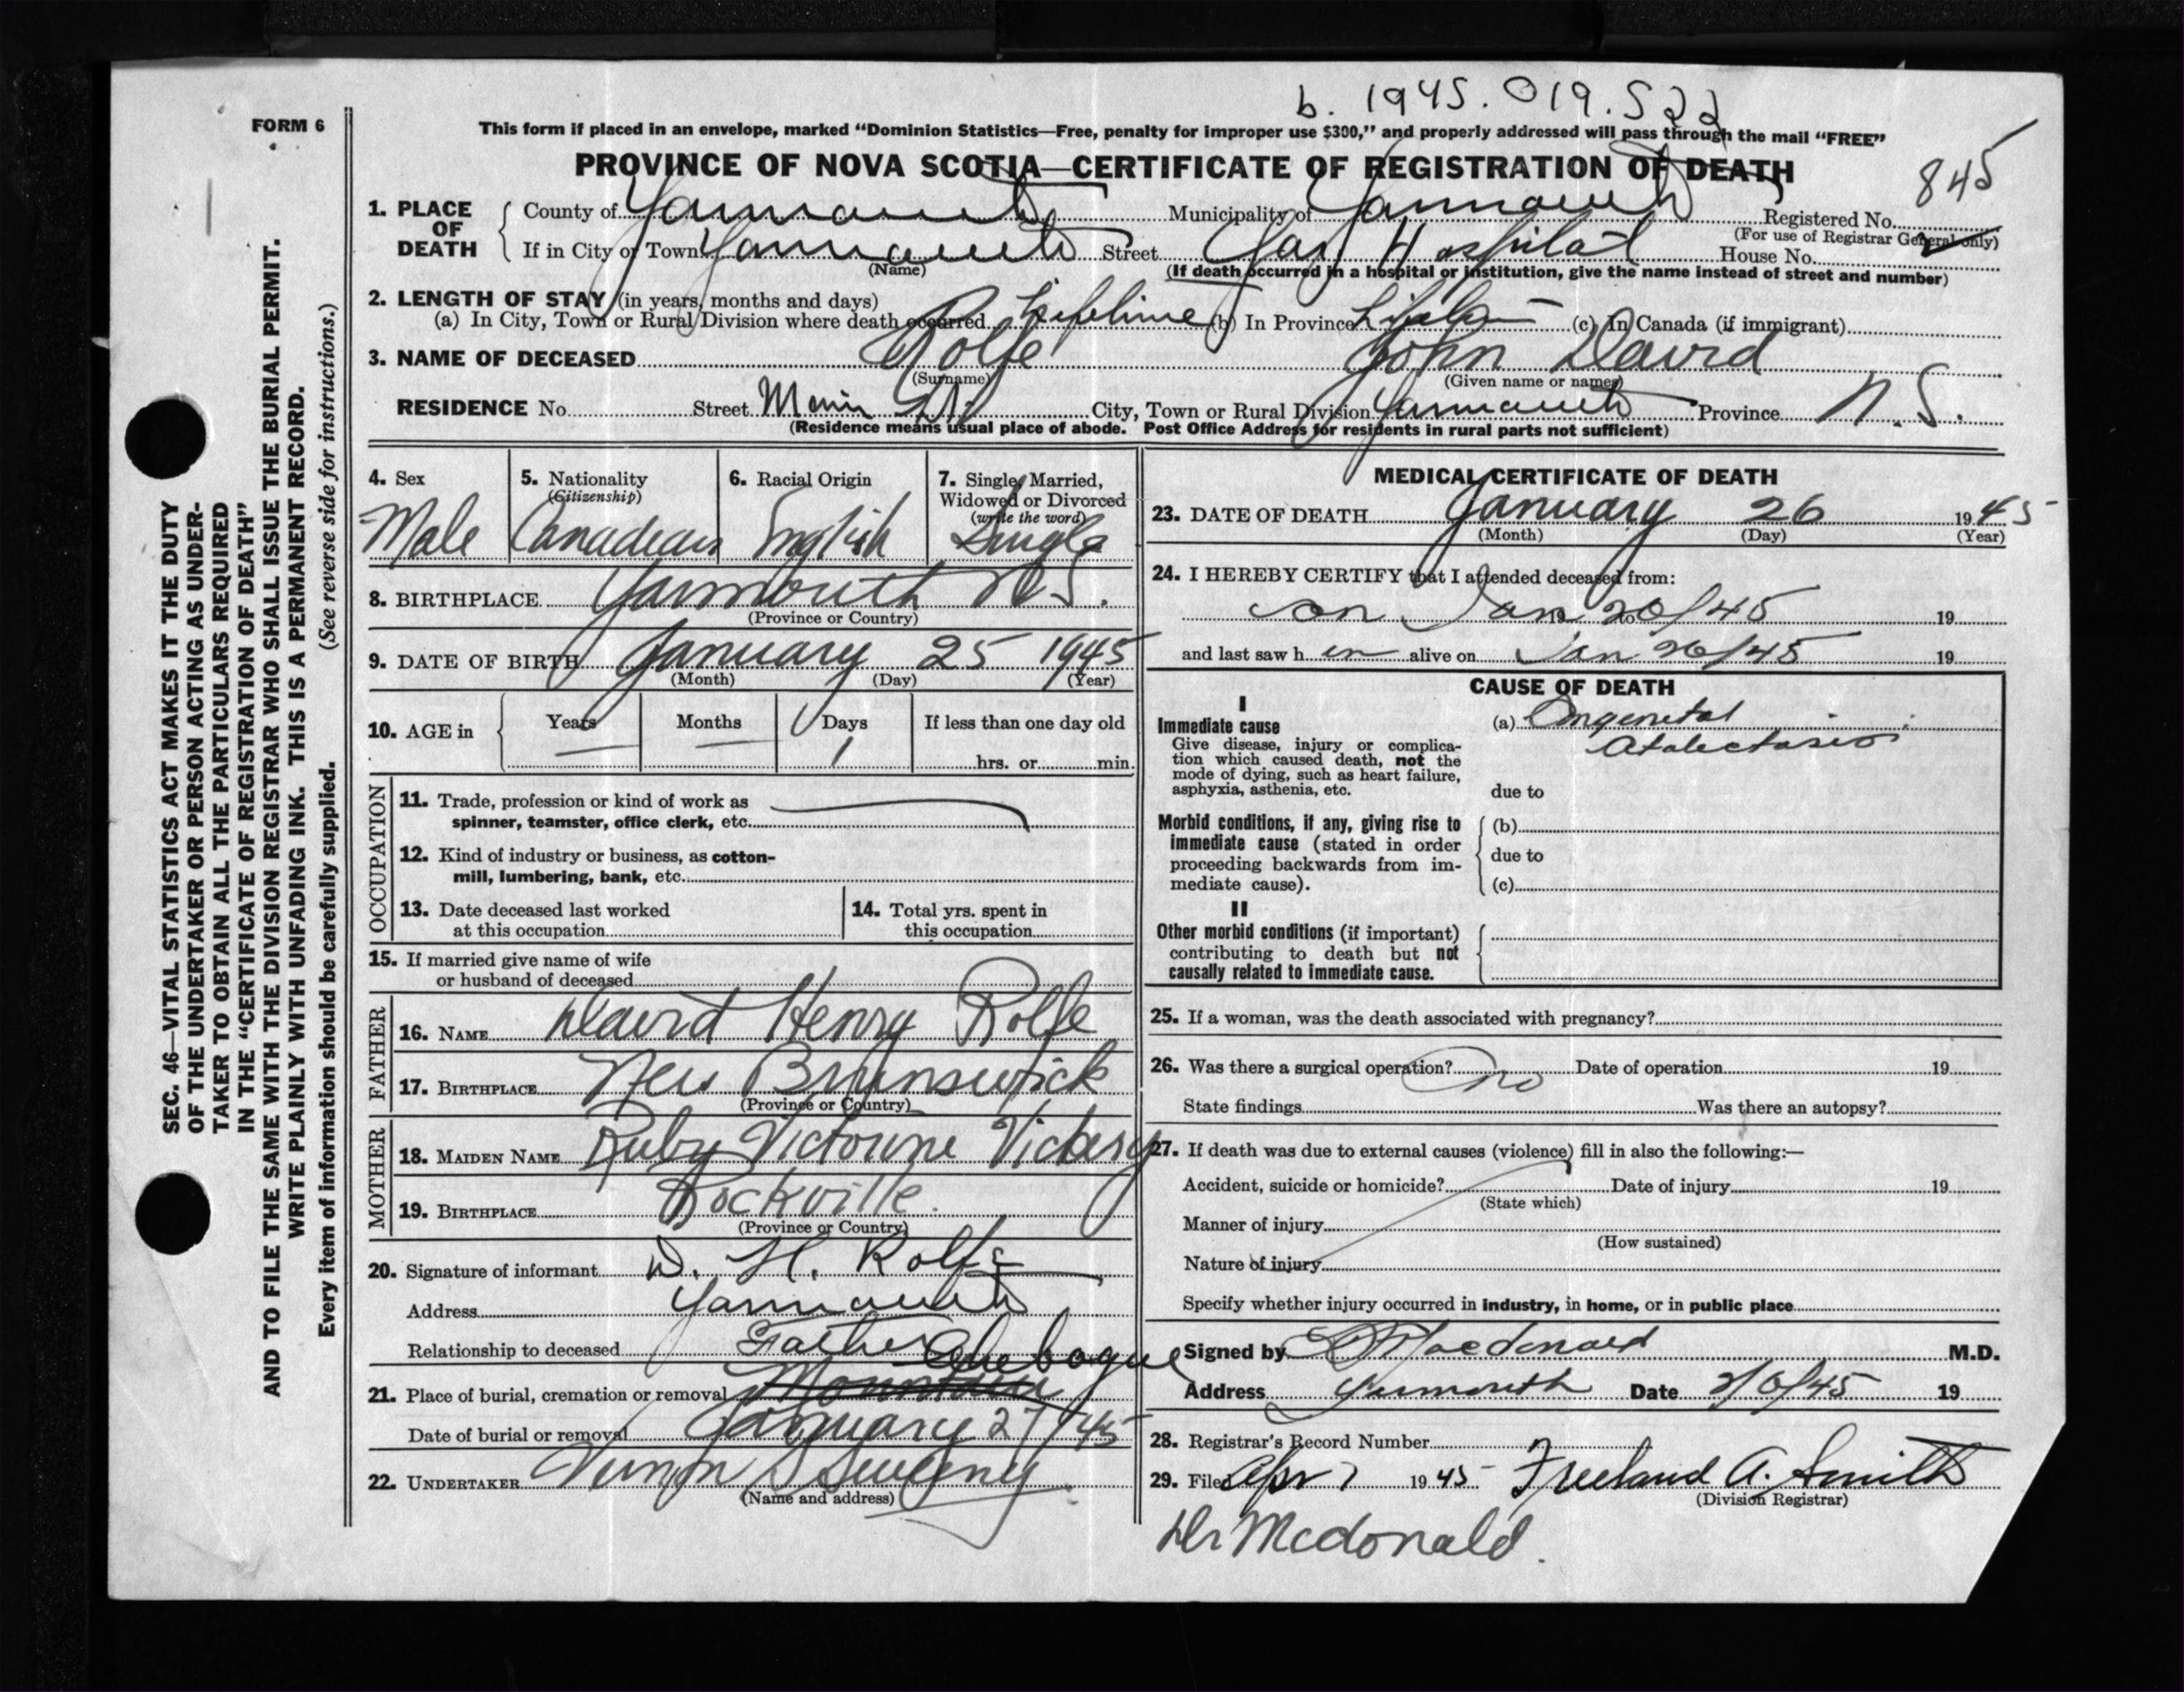 b. 1945. 019.522
FORM 6
This form if placed in an envelope, marked “Dominion Statistics—Free, penalty for improper use $300,” and properly addressed will pass through the mail “FREE”
PROVINCE OF NOVA SCOTIA—CERTIFICATE OF REGISTRATION OF DEATH
845
1. PLACE OF DEATH County of Yarmouth Municipality of Yarmouth Registered No.
(For use of Registrar General only)
If in City or Town Yarmouth Street Yar Hospital House No.
(Name) (If death occurred in a hospital or institution, give the name instead of street and number)
2. LENGTH OF STAY (in years, months and days)
(a) In City, Town or Rural Division where death occurred Lifetime (b) In Province (c) In Canada (if immigrant)
3. NAME OF DECEASED Rolfe John David
(Surname) (Given name or names)
RESIDENCE No. Street Main St. City, Town or Rural Division Yarmouth Province N.S.
(Residence means usual place of abode. Post Office Address for residents in rural parts not sufficient)
4. Sex Male
5. Nationality (Citizenship) Canadian
6. Racial Origin English
7. Single, Married, Widowed or Divorced (write the word) Single
8. BIRTHPLACE Yarmouth N.S.
(Province or Country)
9. DATE OF BIRTH January 25 1945
(Month) (Day) (Year)
10. AGE in Years — Months — Days 1 If less than one day old
hrs. or min.
OCCUPATION
11. Trade, profession or kind of work as
spinner, teamster, office clerk, etc.
12. Kind of industry or business, as cotton-
mill, lumbering, bank, etc.
13. Date deceased last worked
at this occupation
14. Total yrs. spent in
this occupation
15. If married give name of wife
or husband of deceased
FATHER
16. NAME David Henry Rolfe
17. BIRTHPLACE New Brunswick
(Province or Country)
MOTHER
18. MAIDEN NAME Ruby Victorine Vickery
19. BIRTHPLACE Rockville.
(Province or Country)
20. Signature of informant D. H. Rolfe
Address Yarmouth
Relationship to deceased Father
21. Place of burial, cremation or removal Mountain Chebogue
Date of burial or removal January 27/45
22. UNDERTAKER Vernon S Sweeny
(Name and address)
MEDICAL CERTIFICATE OF DEATH
23. DATE OF DEATH January 26 1945
(Month) (Day) (Year)
24. I HEREBY CERTIFY that I attended deceased from:
on Jan 19 to 26/45 19
and last saw h im alive on Jan 26/45 19
CAUSE OF DEATH
I
Immediate cause
Give disease, injury or complica-
tion which caused death, not the
mode of dying, such as heart failure,
asphyxia, asthenia, etc.
(a) Congenital
Atalectasis
due to
Morbid conditions, if any, giving rise to
immediate cause (stated in order
proceeding backwards from im-
mediate cause).
(b)
due to
(c)
II
Other morbid conditions (if important)
contributing to death but not
causally related to immediate cause.
25. If a woman, was the death associated with pregnancy?
26. Was there a surgical operation? no Date of operation 19
State findings Was there an autopsy?
27. If death was due to external causes (violence) fill in also the following:—
Accident, suicide or homicide? Date of injury 19
(State which)
Manner of injury
(How sustained)
Nature of injury
Specify whether injury occurred in industry, in home, or in public place
Signed by Macdonald M.D.
Address Yarmouth Date 2/6/45 19
28. Registrar's Record Number
29. Filed Apr 7 1945 Freeland A. Smith
(Division Registrar)
Dr Mcdonald.
SEC. 46—VITAL STATISTICS ACT MAKES IT THE DUTY
OF THE UNDERTAKER OR PERSON ACTING AS UNDER-
TAKER TO OBTAIN ALL THE PARTICULARS REQUIRED
IN THE “CERTIFICATE OF REGISTRATION OF DEATH”
AND TO FILE THE SAME WITH THE DIVISION REGISTRAR WHO SHALL ISSUE THE BURIAL PERMIT.
WRITE PLAINLY WITH UNFADING INK. THIS IS A PERMANENT RECORD.
Every item of information should be carefully supplied. (See reverse side for instructions.)